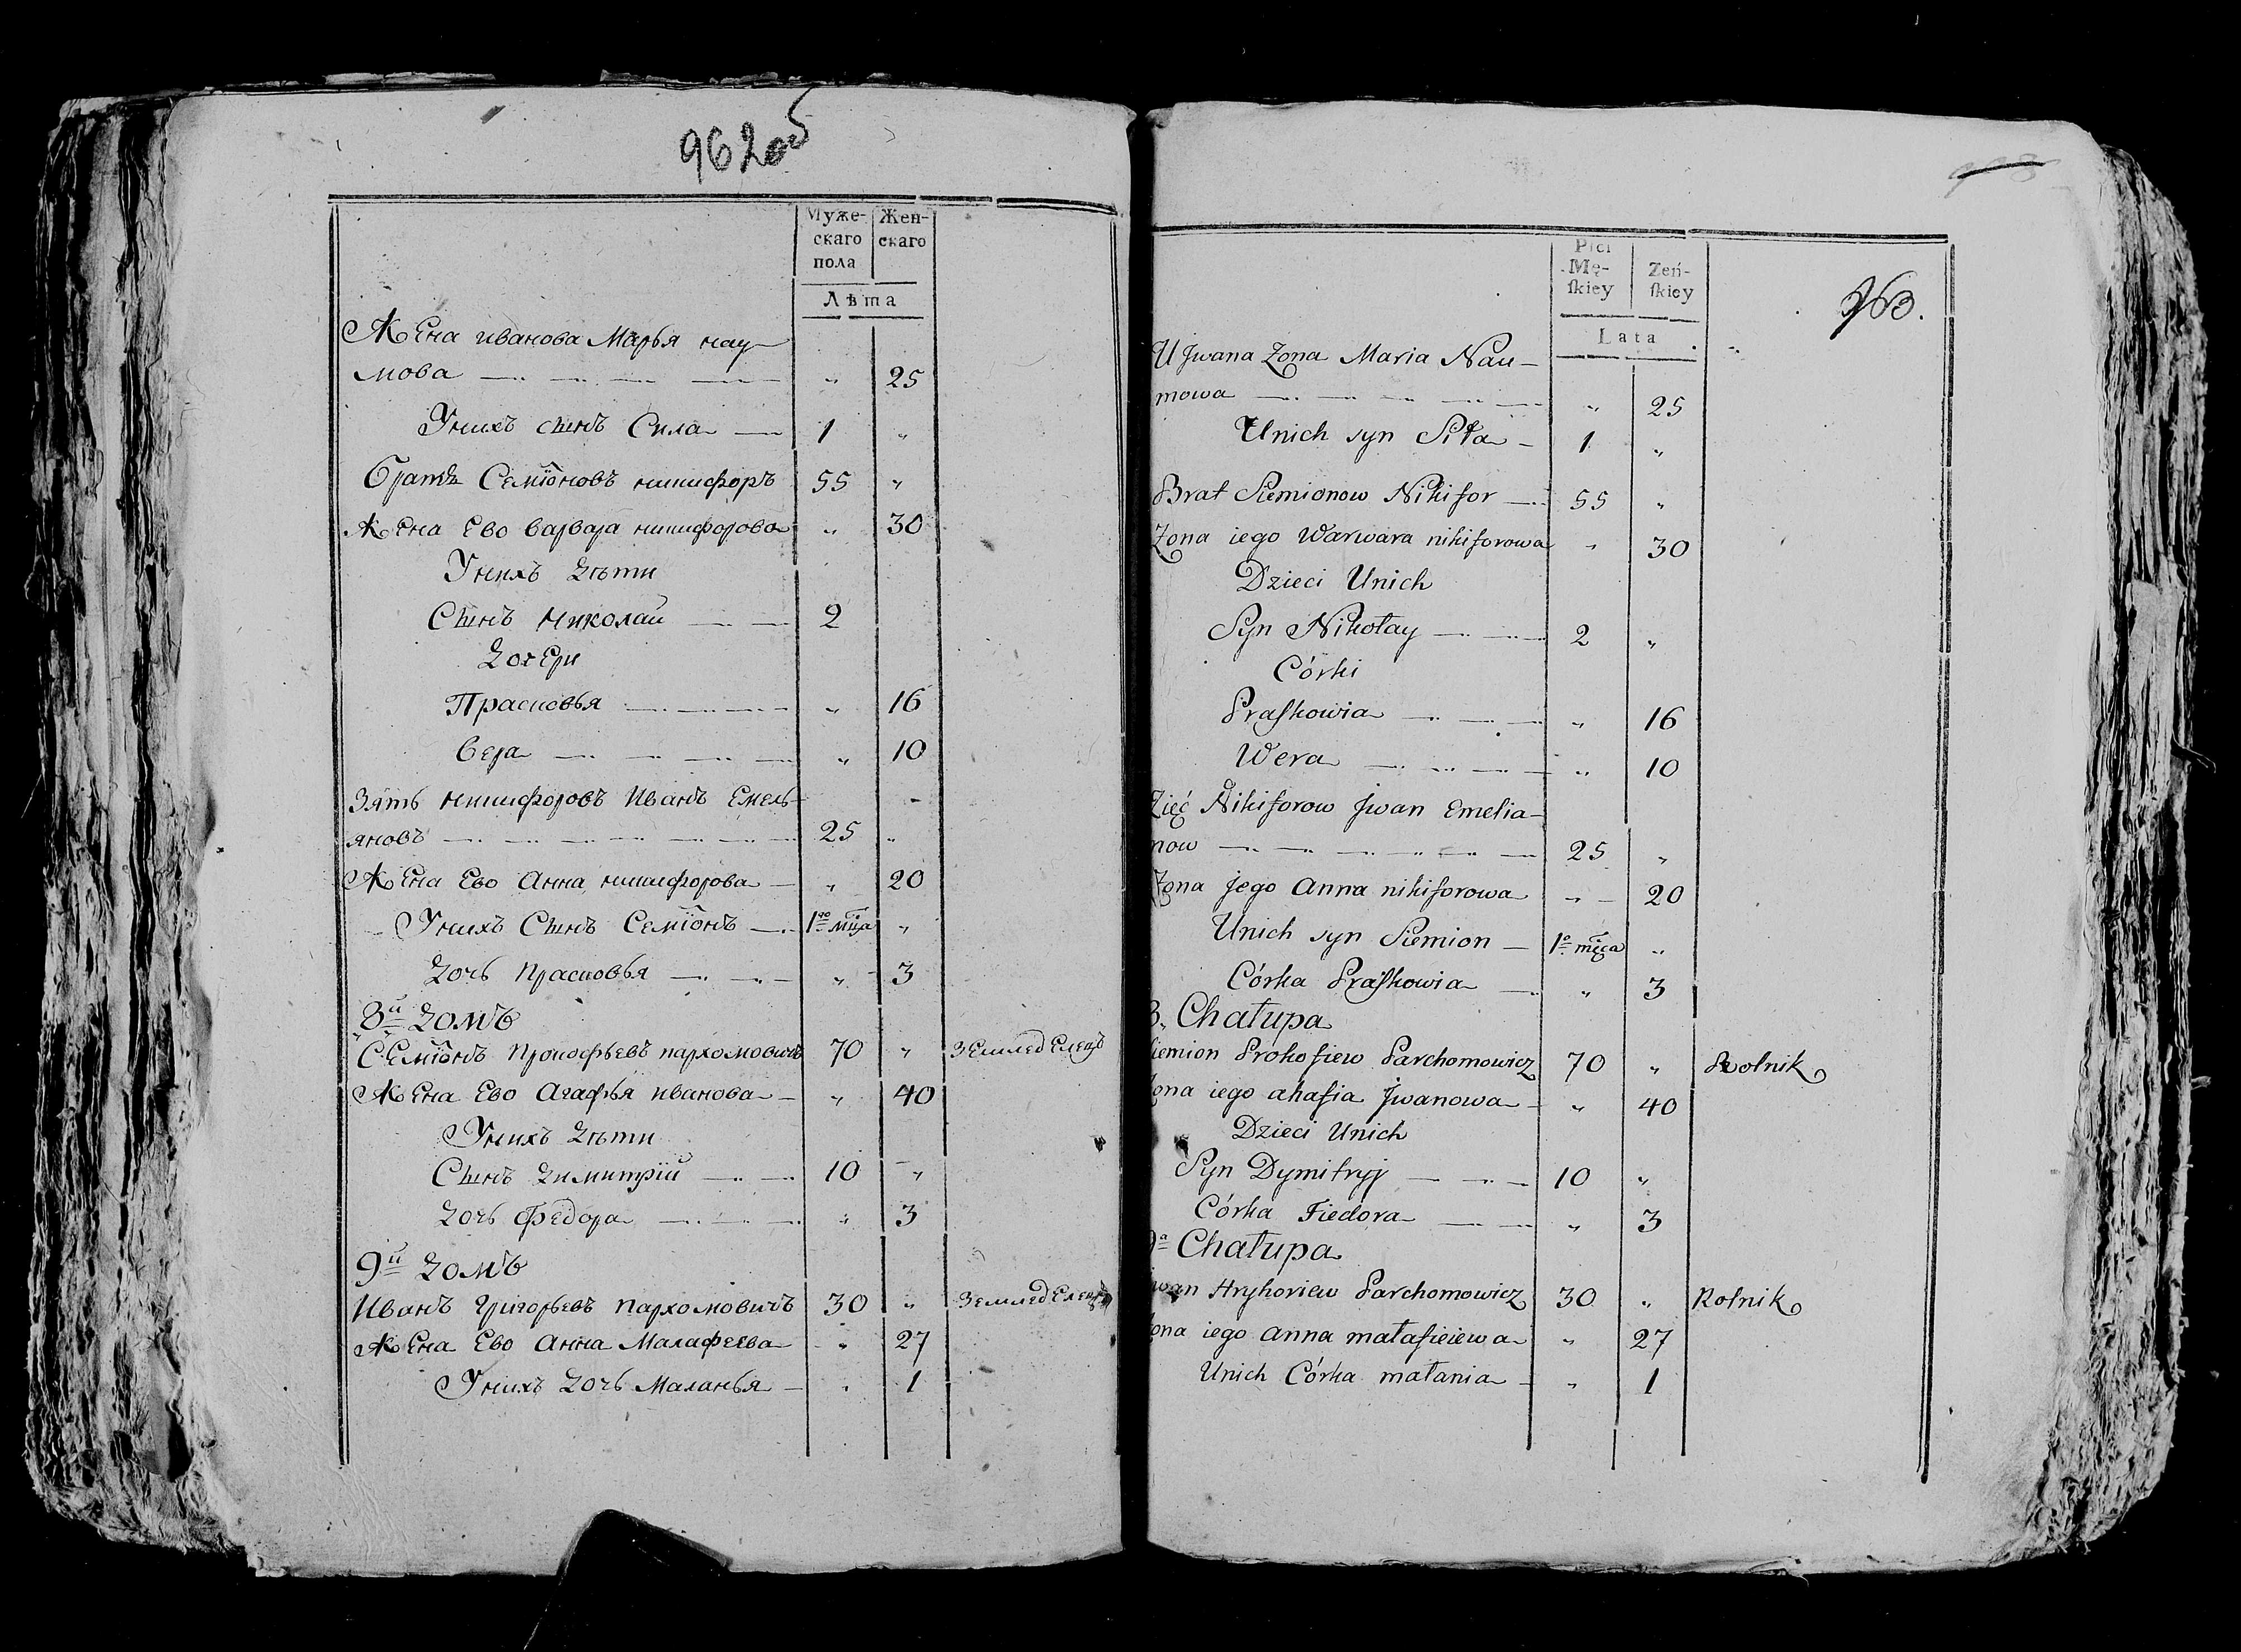 962об
Муже- Жен-
скаго скаго
пола
Лѣта
Жена иванова Марья нау-
мова „ 25
Унихъ сынъ Сила 1 „
братъ Семїоновъ никифоръ 55 „
Жена Ево варвара никифорова „ 30
Унихъ дѣти
Сынъ Николай 2
дочери
Прасковья „ 16
вера „ 10
Зять никифоровъ Иванъ Емель-
яновъ 25 „
Жена Ево Анна никифорова „ 20
Унихъ Сынъ Семїонъ 1го мца „
дочь прасковья „ 3
„8й домъ
Семїонъ Прокофьевъ пархомовичъ 70 „ землед Елецъ
Жена Ево Агафья иванова „ 40
Унихъ дѣти
Сынъ димитрїй 10 „
дочь федора „ 3
9й домъ
Иванъ григорьевъ пархомовичъ 30 „ землед Елецъ
Жена Ево Анна Малафеева „ 27
Унихъ дочь Маланья „ 1
963.
Płci
Mę- Zeń-
ſkiey ſkiey
Lata
U Jwana Zona Maria Nau-
mowa „ 25
Unich syn Siła 1 „
Brat Siemionow Nikifor 55 „
Zona iego Warwara nikiforowa „ 30
Dzieci Unich
Syn Nikołay 2 „
Córki
Praſkowia „ 16
Wera „ 10
Zięć Nikiforow Jwan Emelia-
now 25 „
Zona jego Anna nikiforowa „ 20
Unich syn Siemion 1o mięca „
Córka Praſkowia „ 3
8„ Chałupa
Siemion Prokofiew Parchomowicz 70 „ Rolnik
Zona iego ahafia Jwanowa „ 40
Dzieci Unich
Syn Dymitryj 10 „
Córka Fiedora „ 3
9a Chałupa
Jwan Hryhoriew Parchomowicz 30 „ Rolnik
Zona iego anna małafieiewa „ 27
Unich Córka małania „ 1